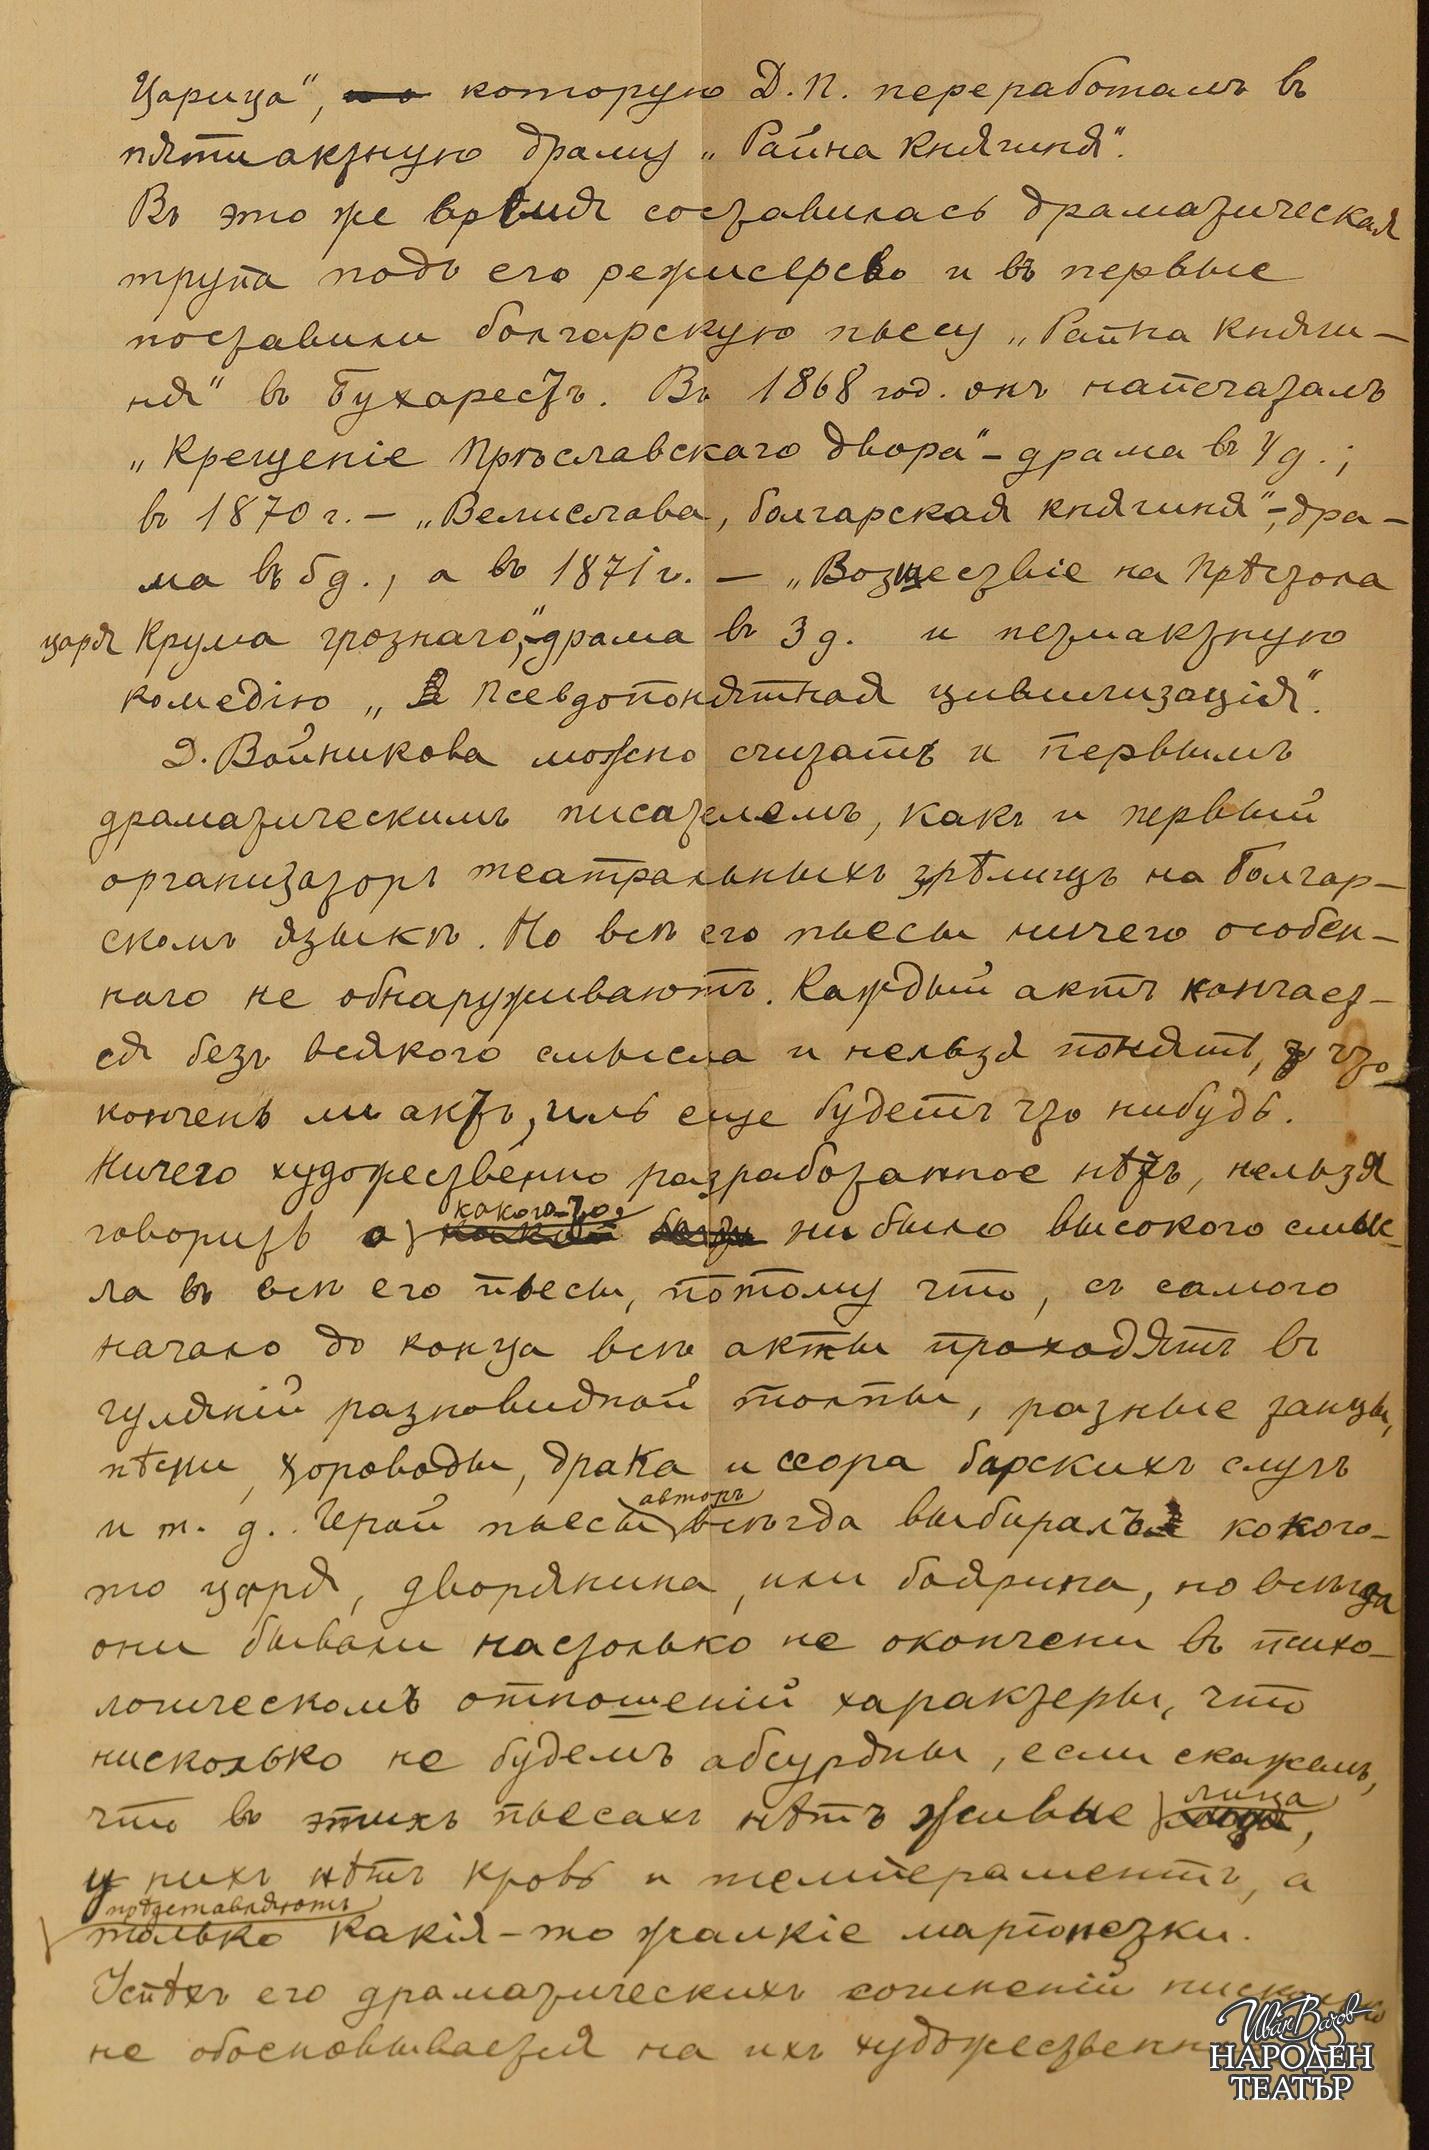 Царица", которую Д. П. переработалъ въ
пятиактную драму „Райна Княгиня".
Въ это же врѣмя составилась драматическая
трупа подъ его режисерсво и въ первые
поставили болгарскую пьесу „Райна Княги-
ня" въ Бухарестъ. Въ 1868 год. онъ напечаталъ
„Крещеніе Прѣславскаго двора" – драма въ 4 д.;
въ 1870 г. – „Велислава, болгарская княгиня" –, дра-
ма въ 5 д., а въ 1871 г. – „Возшествіе на Прѣстола
царя Крума грознаго", – драма въ 3 д. и петиактную
комедію „Псевдопонятная цивилизація".
Д. Войникова можно считать и первымъ
драматическимъ писателемъ, какъ и первый
организаторъ театральныхъ зрѣлищъ на болгар-
скомъ языкѣ. Но всѣ его пьесы ничего особен-
наго не обнаруживаютъ. Каждый актъ кончает-
ся безъ всякого смысла и нельзя понять, что
конченъ ли актъ, иль еще будетъ что нибудь.
Ничего художественно разработанное нѣтъ, нельзя
говорить о какого-то ни было высокого смыс-
ла въ всѣ его пьесы, потому что, съ самого
начало до конца всѣ акты проходятъ въ
гуляній разновидной толпы, разные танцы,
пѣсни, хороводы, драка и ссора барскихъ слугъ
и т. д. Герой пьесы авторъ всѣгда выбиралъ какого-
то царя, дворянина, или боярина, но всѣгда
они бывали настолько не окончени въ психо-
логическомъ отношеній характеры, что
нисколько не будемъ абсурдны, если скажемъ,
что въ этихъ пьесахъ нѣтъ живые лица,
у нихъ нѣтъ кровь и темпераментъ, а
представляютъ
только какія-то жалкіе марионетки.
Успѣхъ его драматическихъ сочиненій нисколько
не обосновывается на ихъ
Иван Вазов
НАРОДЕН
ТЕАТЪР